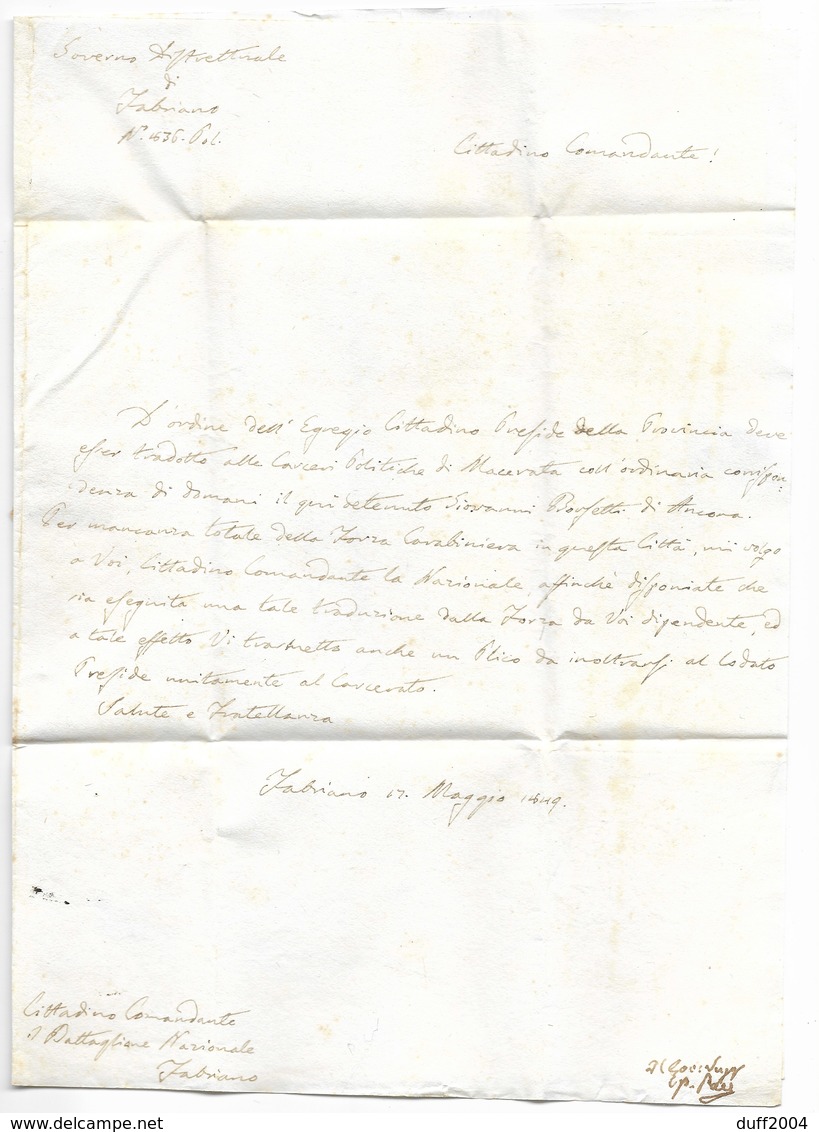 Governo Distrettuale
di
Fabriano
N.º 1636. Pol.
Cittadino Comandante!
D'ordine dell'Egregio Cittadino Preside della Provincia deve
esser tradotto alle Carceri Politiche di Macerata coll'ordinaria corrispon-
denza di domani il qui detenuto Giovanni Borsetti di Ancona.
Per mancanza totale della Forza Carabiniera in questa Città, mi volgo
a Voi, Cittadino Comandante la Nazionale, affinchè disponiate che
sia eseguita una tale traduzione dalla Forza da Voi dipendente, ed
a tale effetto Vi trasmetto anche un Plico da inoltrarsi al lodato
Preside unitamente al Carcerato.
Salute e Fratellanza
Fabriano 17. Maggio 1849.
Cittadino Comandante
il Battaglione Nazionale
Fabriano
duff2004